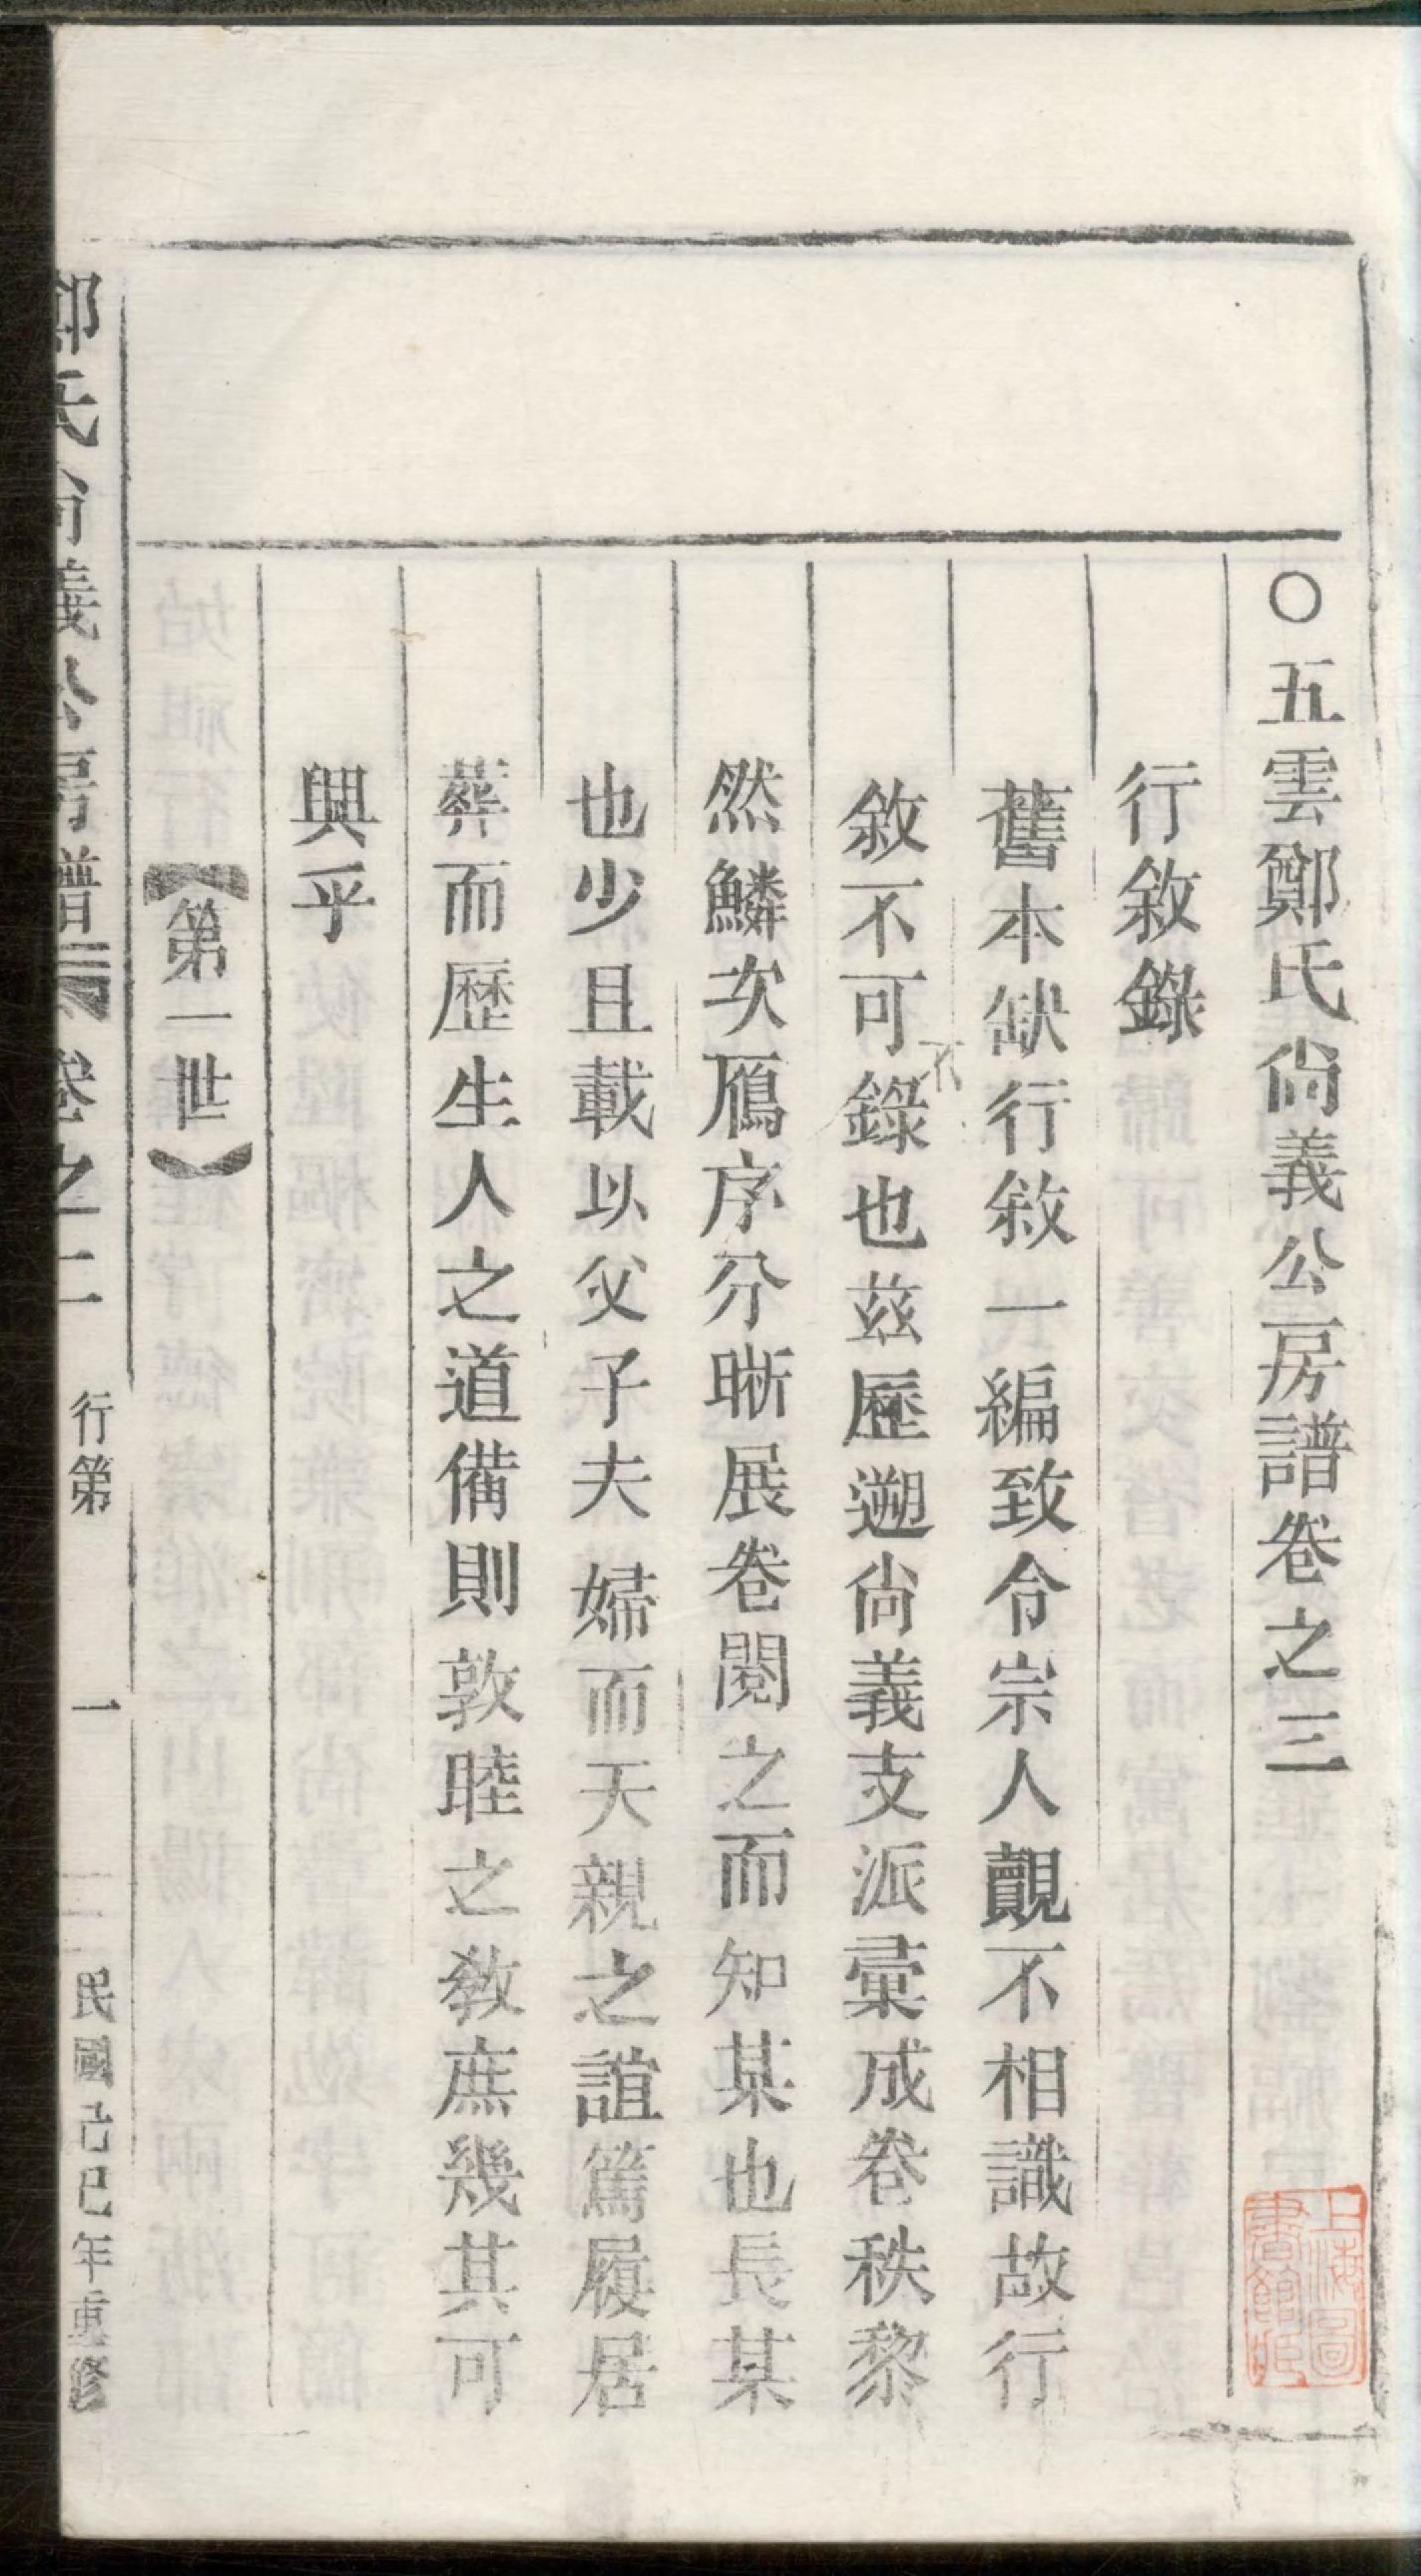 〇五雲鄭氏尙義公房譜卷之三
行敘錄
舊本缺行敘一編致令宗人覿不相識故行
敘不可不錄也茲歷遡尙義支派彙成卷秩黎
然鱗次鴈序分晰展卷閱之而知某也長某
也少且載以父子夫婦而天親之誼篤履居
葬而歷生人之道備則敦睦之敎庶幾其可
興乎
【第一世】
鄭氏尙義公房譜 卷之二 行第 一 民國己巳年重修
上海圖書館藏